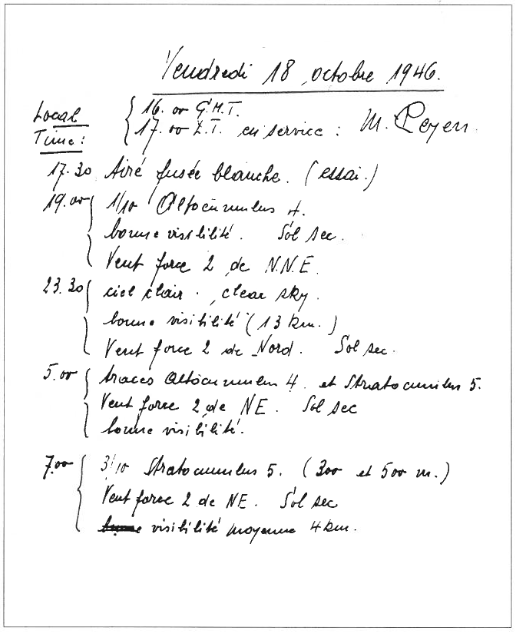 Vendredi 18 octobre 1946.
Local Time:
16.00 G.M.T.
17.00 L.T. en service : M. Peyen.
17.30 Tiré fusée blanche. (essai.)
19.00 1/10 Altocumulus 4.
bonne visibilité. Sol sec.
Vent force 2 de N.N.E.
23.30 ciel clair. clear sky.
bonne visibilité (13 km.)
Vent force 2 de Nord. Sol sec.
5.00 traces Altocumulus 4 et Stratocumulus 5.
Vent force 2 de NE. Sol sec
bonne visibilité.
7.00 3/10 Stratocumulus 5. (300 et 500 m.)
Vent force 2 de NE. Sol sec
visibilité moyenne 4 km.